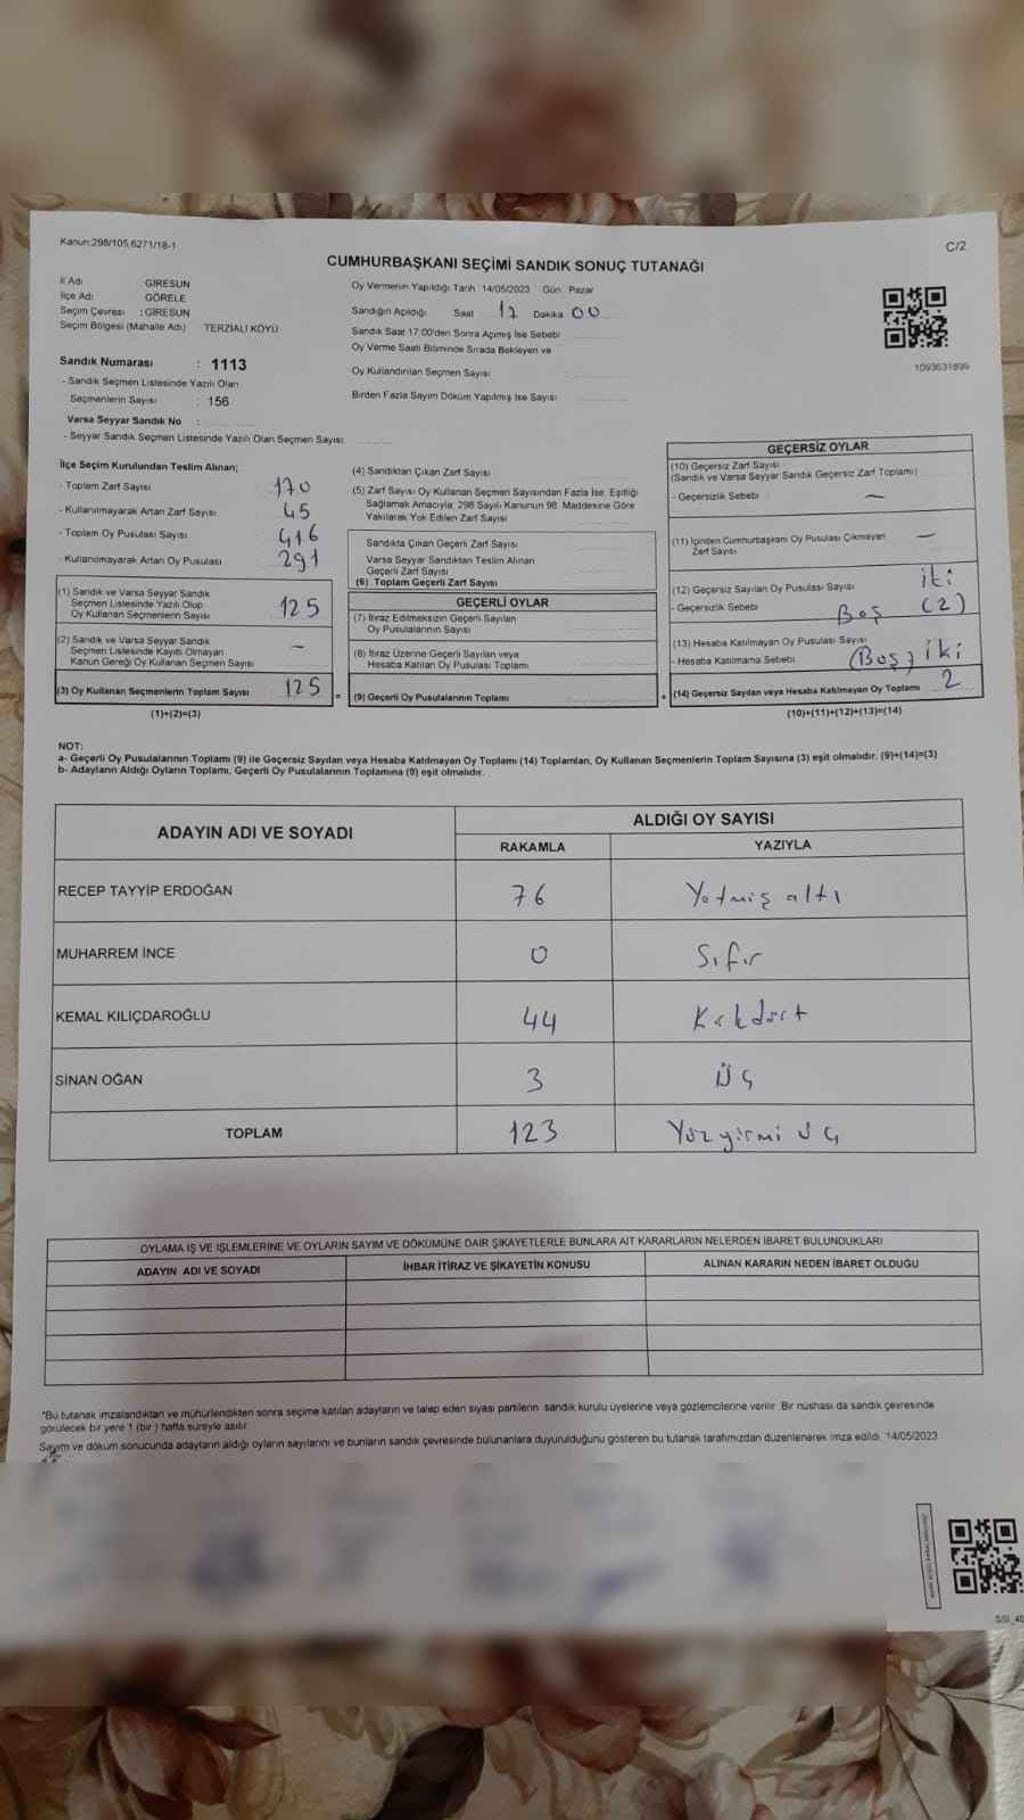 Kanun:298/105,6271/18-1
C/2
CUMHURBAŞKANI SEÇİMİ SANDIK SONUÇ TUTANAĞI
İl Adı GİRESUN
İlçe Adı GÖRELE
Seçim Çevresi : GİRESUN
Seçim Bölgesi (Mahalle Adı) TERZİALİ KÖYÜ
Sandık Numarası : 1113
- Sandık Seçmen Listesinde Yazılı Olan
Seçmenlerin Sayısı : 156
Varsa Seyyar Sandık No :
- Seyyar Sandık Seçmen Listesinde Yazılı Olan Seçmen Sayısı
Oy Vermenin Yapıldığı Tarih 14/05/2023 Gün Pazar
Sandığın Açıldığı Saat 17 Dakika 00
Sandık Saat 17.00'den Sonra Açmış İse Sebebi
Oy Verme Saati Bitiminde Sırada Bekleyen ve
Oy Kullandırılan Seçmen Sayısı
Birden Fazla Sayım Döküm Yapılmış İse Sayısı
1093631899
İlçe Seçim Kurulundan Teslim Alınan;
- Toplam Zarf Sayısı 170
- Kullanılmayarak Artan Zarf Sayısı 45
- Toplam Oy Pusulası Sayısı 416
- Kullanılmayarak Artan Oy Pusulası 291
(1) Sandık ve Varsa Seyyar Sandık
Seçmen Listesinde Yazılı Olup
Oy Kullanan Seçmenlerin Sayısı 125
(2) Sandık ve Varsa Seyyar Sandık
Seçmen Listesinde Kayıtlı Olmayan
Kanun Gereği Oy Kullanan Seçmen Sayısı -
(3) Oy Kullanan Seçmenlerin Toplam Sayısı 125 =
(1)+(2)=(3)
(4) Sandıktan Çıkan Zarf Sayısı
(5) Zarf Sayısı Oy Kullanan Seçmen Sayısından Fazla İse, Eşitliği
Sağlamak Amacıyla, 298 Sayılı Kanunun 98. Maddesine Göre
Yakılarak Yok Edilen Zarf Sayısı
Sandıkta Çıkan Geçerli Zarf Sayısı
Varsa Seyyar Sandıktan Teslim Alınan
Geçerli Zarf Sayısı
(6) Toplam Geçerli Zarf Sayısı
GEÇERLİ OYLAR
(7) İtiraz Edilmeksizin Geçerli Sayılan
Oy Pusulalarının Sayısı
(8) İtiraz Üzerine Geçerli Sayılan veya
Hesaba Katılan Oy Pusulası Toplamı
(9) Geçerli Oy Pusulalarının Toplamı +
GEÇERSİZ OYLAR
(10) Geçersiz Zarf Sayısı
(Sandık ve Varsa Seyyar Sandık Geçersiz Zarf Toplamı)
- Geçersizlik Sebebi -
(11) İçinden Cumhurbaşkanı Oy Pusulası Çıkmayan -
Zarf Sayısı
(12) Geçersiz Sayılan Oy Pusulası Sayısı iki
- Geçersizlik Sebebi Boş (2)
(13) Hesaba Katılmayan Oy Pusulası Sayısı
- Hesaba Katılmama Sebebi (Boş) iki
(14) Geçersiz Sayılan veya Hesaba Katılmayan Oy Toplamı 2
(10)+(11)+(12)+(13)=(14)
NOT:
a- Geçerli Oy Pusulalarının Toplamı (9) ile Geçersiz Sayılan veya Hesaba Katılmayan Oy Toplamı (14) Toplamları, Oy Kullanan Seçmenlerin Toplam Sayısına (3) eşit olmalıdır. (9)+(14)=(3)
b- Adayların Aldığı Oyların Toplamı, Geçerli Oy Pusulalarının Toplamına (9) eşit olmalıdır.
ADAYIN ADI VE SOYADI ALDIĞI OY SAYISI
RAKAMLA YAZIYLA
RECEP TAYYİP ERDOĞAN 76 Yetmiş altı
MUHARREM İNCE 0 Sıfır
KEMAL KILIÇDAROĞLU 44 Kırkdört
SİNAN OĞAN 3 Üç
TOPLAM 123 Yüzyirmi üç
OYLAMA İŞ VE İŞLEMLERİNE VE OYLARIN SAYIM VE DÖKÜMÜNE DAİR ŞİKAYETLERLE BUNLARA AİT KARARLARIN NELERDEN İBARET BULUNDUKLARI
ADAYIN ADI VE SOYADI İHBAR İTİRAZ VE ŞİKAYETİN KONUSU ALINAN KARARIN NEDEN İBARET OLDUĞU
"Bu tutanak imzalandıktan ve mühürlendikten sonra seçime katılan adayların ve talep eden siyasi partilerin sandık kurulu üyelerine veya gözlemcilerine verilir. Bir nüshası da sandık çevresinde
görülecek bir yere 1 (bir) hafta süreyle asılır.
Sayım ve döküm sonucunda adayların aldığı oyların sayılarını ve bunların sandık çevresinde bulunanlara duyurulduğunu gösteren bu tutanak tarafımızdan düzenlenerek imza edildi. 14/05/2023